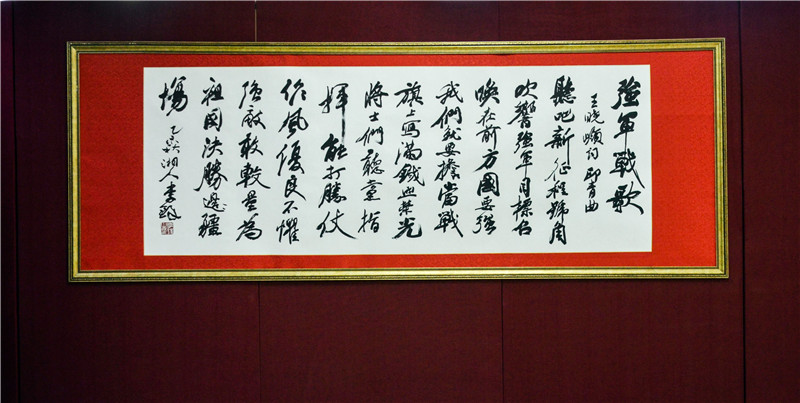 強軍戰歌
王晓嶺詞 印青曲
聽吧新征程號角
吹響強軍目標召
喚在前方國要強
我們就要擔當戰
旗上寫滿鐵血榮光
將士們聽黨指
揮能打勝仗
作風優良不懼
強敵敢較量為
祖國決勝邊疆
場
乙未 湘人李鐸